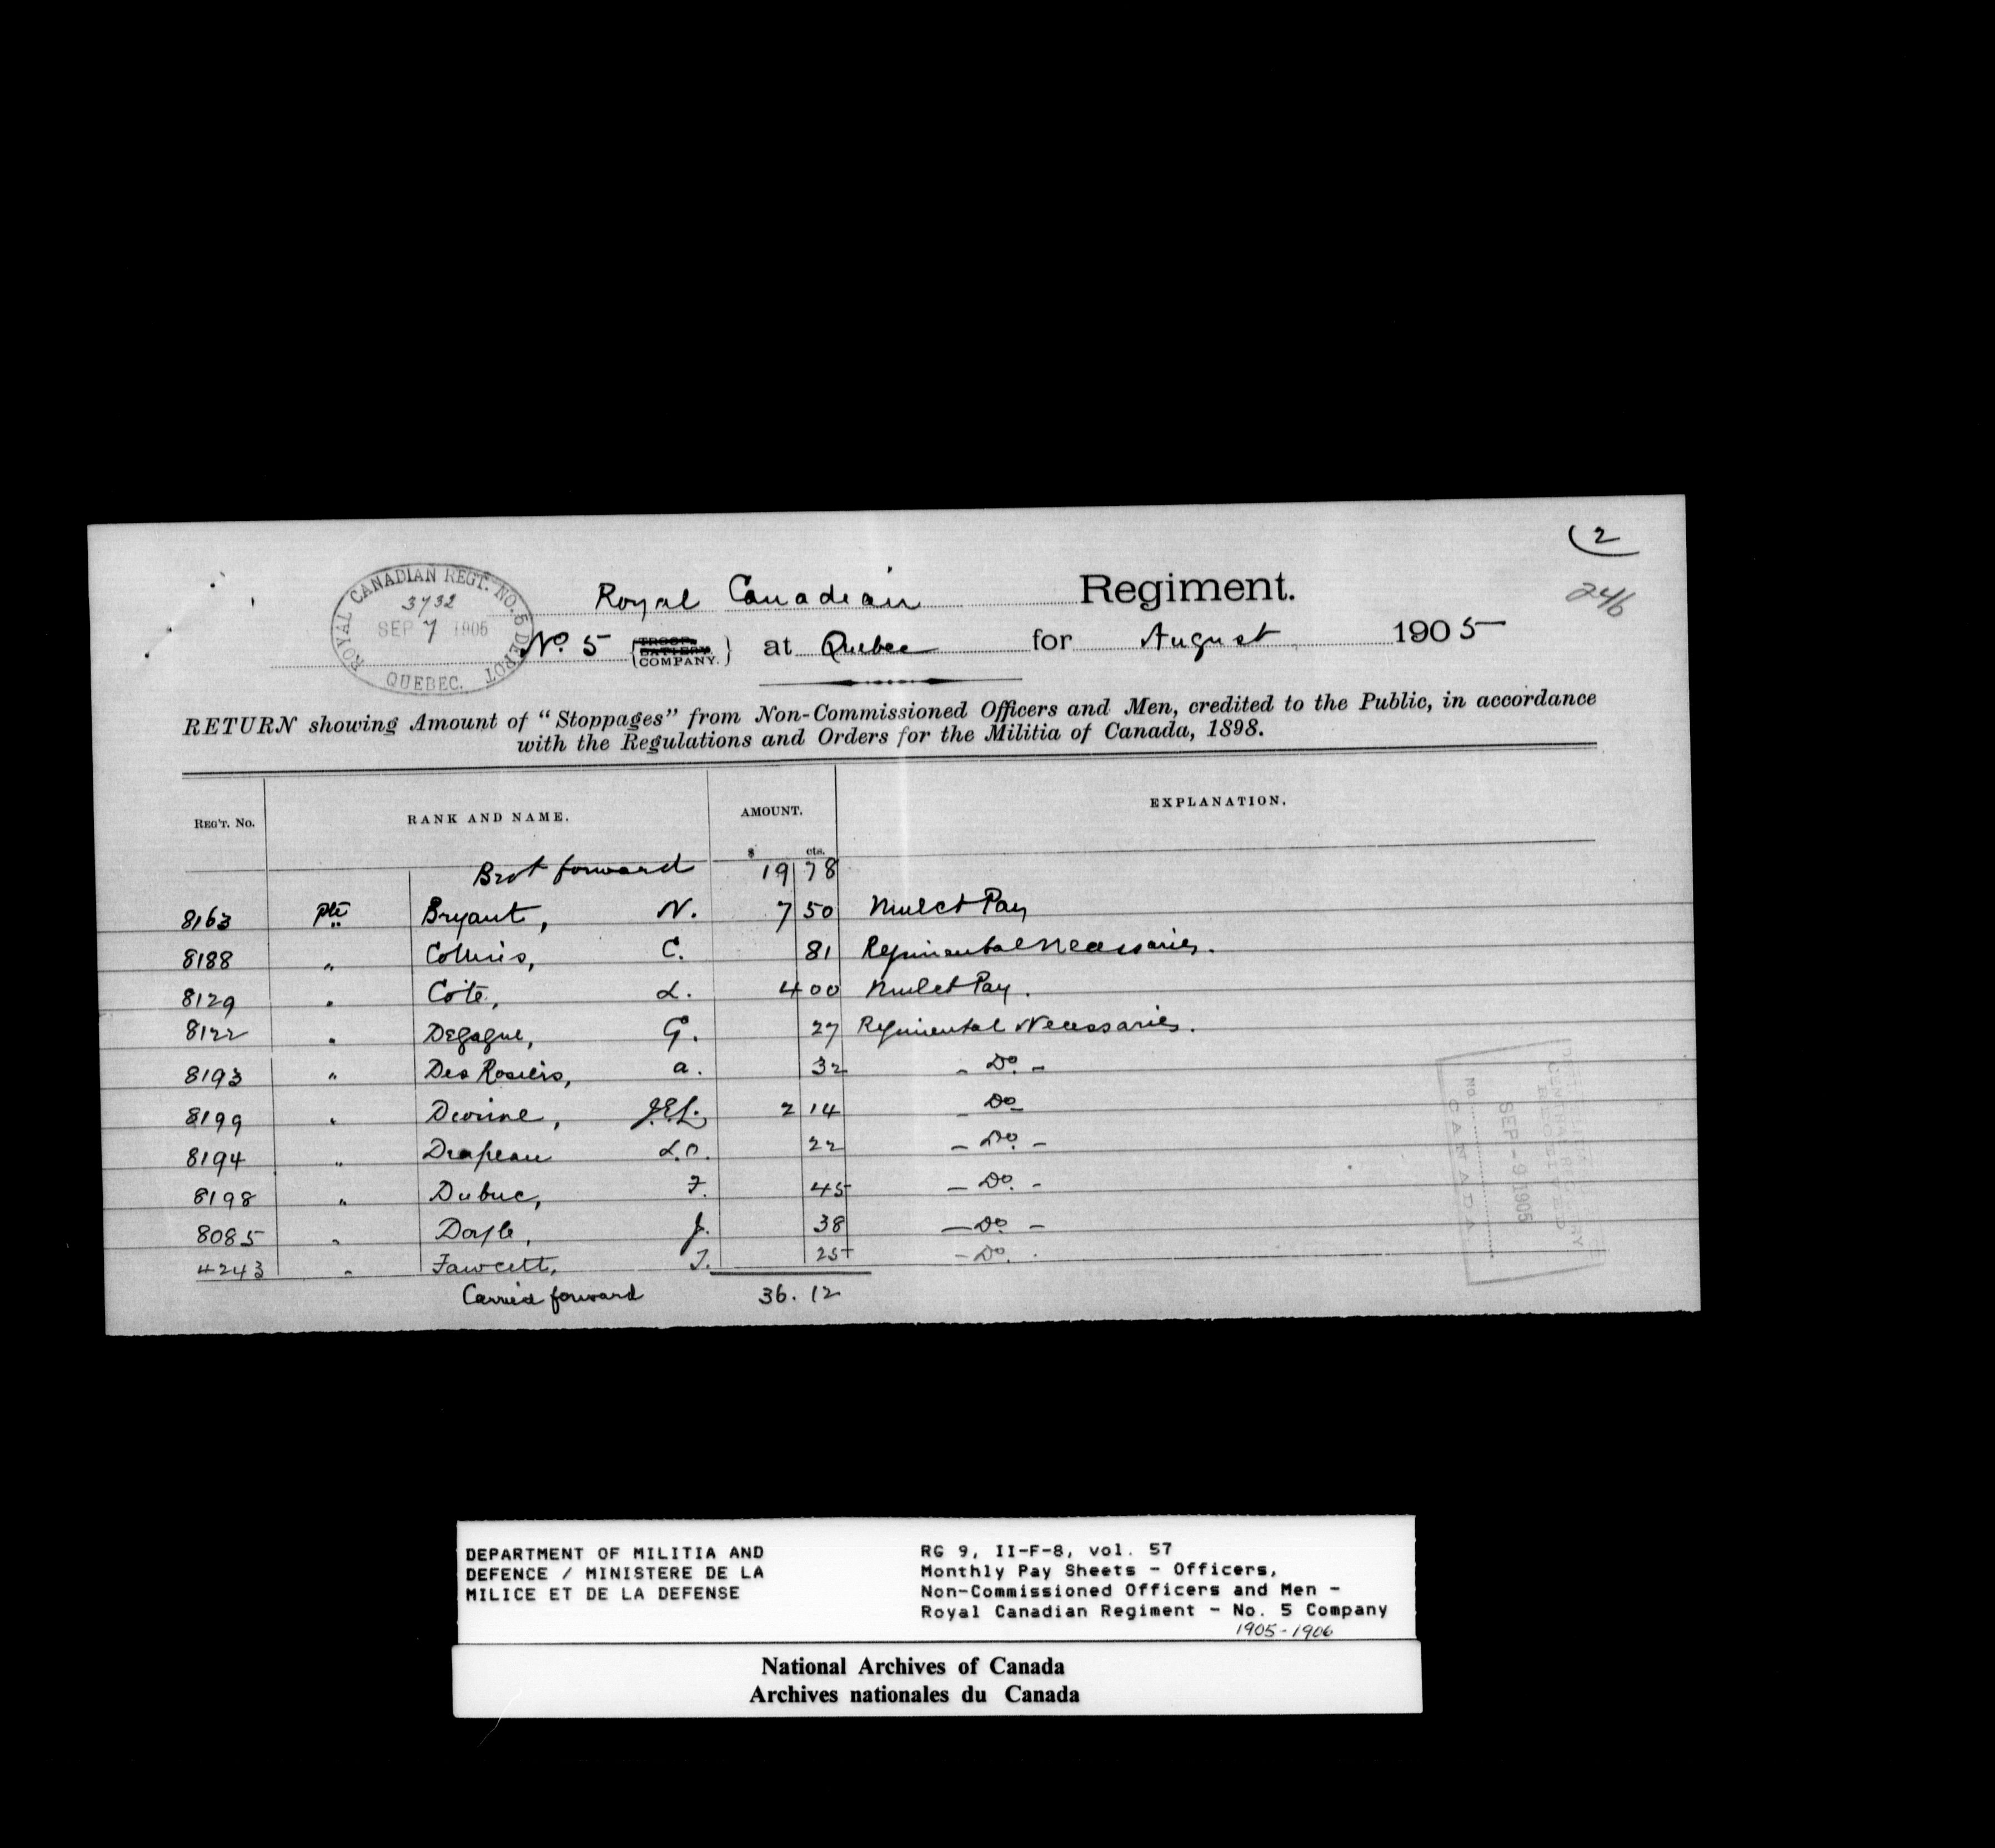 (2
246
ROYAL CANADIAN REGT. NO. 5 DEPOT
3732
SEP 7 1905
QUEBEC.
Royal Canadian Regiment.
No. 5 {TROOP. BATTERY. COMPANY.} at Quebec for August 1905
RETURN showing Amount of “Stoppages” from Non-Commissioned Officers and Men, credited to the Public, in accordance
with the Regulations and Orders for the Militia of Canada, 1898.
REG'T. No. RANK AND NAME. AMOUNT. EXPLANATION.
$ cts.
Brot forward 19 78
8163 Pte Bryant, N. 7 50 Mulct Pay
8188 " Collins, C. 81 Regimental Necessaries.
8129 " Côté, L. 4 00 Mulct Pay.
8122 " Degagne, G. 27 Regimental Necessaries.
8193 " Des Rosiers, A. 32 - Do. -
8199 " Devine, J.E.L. 2 14 - Do
8194 " Drapeau L.O. 22 - Do. -
8198 " Dubuc, F. 45 - Do. -
8085 " Doyle, J. 38 - Do -
4243 " Fawcett, T. 25 - Do.
Carried forward 36.12
RECEIVED
SEP -9 1905
NO
CANADA
DEPARTMENT OF MILITIA AND
DEFENCE / MINISTERE DE LA
MILICE ET DE LA DEFENSE
RG 9, II-F-8, vol. 57
Monthly Pay Sheets - Officers,
Non-Commissioned Officers and Men -
Royal Canadian Regiment - No. 5 Company
1905-1906
National Archives of Canada
Archives nationales du Canada